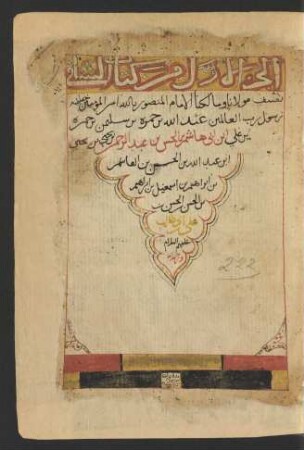 الجزء الاول من كتاب الشافي
تصنيف مولانا ومالكنا الامام المنصور بالله امير المؤمنين
رسول رب العالمين عبد الله بن حمزة بن سليمن بن حمزة
بن علي بن ابي هاشم بن الحسن بن عبد الرحمن بن يحيى
ابن عبد الله بن الحسين بن القاسم
بن ابراهيم بن اسمعيل بن ابراهيم
بن الحسن بن الحسن بن
علي بن ابي طالب
عليهم السلام